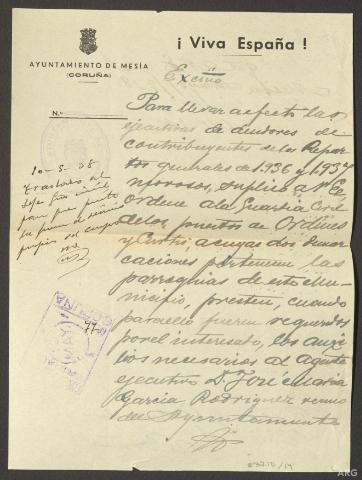 ¡ Viva España !
AYUNTAMIENTO DE MESÍA
(CORUÑA)
N.º
Excmo
Para llevar a efecto las
ejecutivas de deudores de
contribuyentes de los Repar
tos generales de 1936 y 1937
morosos, suplico a V.E.
ordene a la Guardia Civil
de los puestos de Ordenes
y Curtis, a cuyas dos demar
caciones pertenecen, las
parroquias de este Mu-
nicipio, presten, cuando
para ello fueren requeridos
por el interesado, los auxi
lios necesarios al Agente
ejecutivo D. José María
García Rodríguez vecino
de Ayuntamiento
10-5-38
Traslado al
Jefe
para que preste
servicio
propios del cuerpo
MAY
CORUÑA
03210/14
ARG